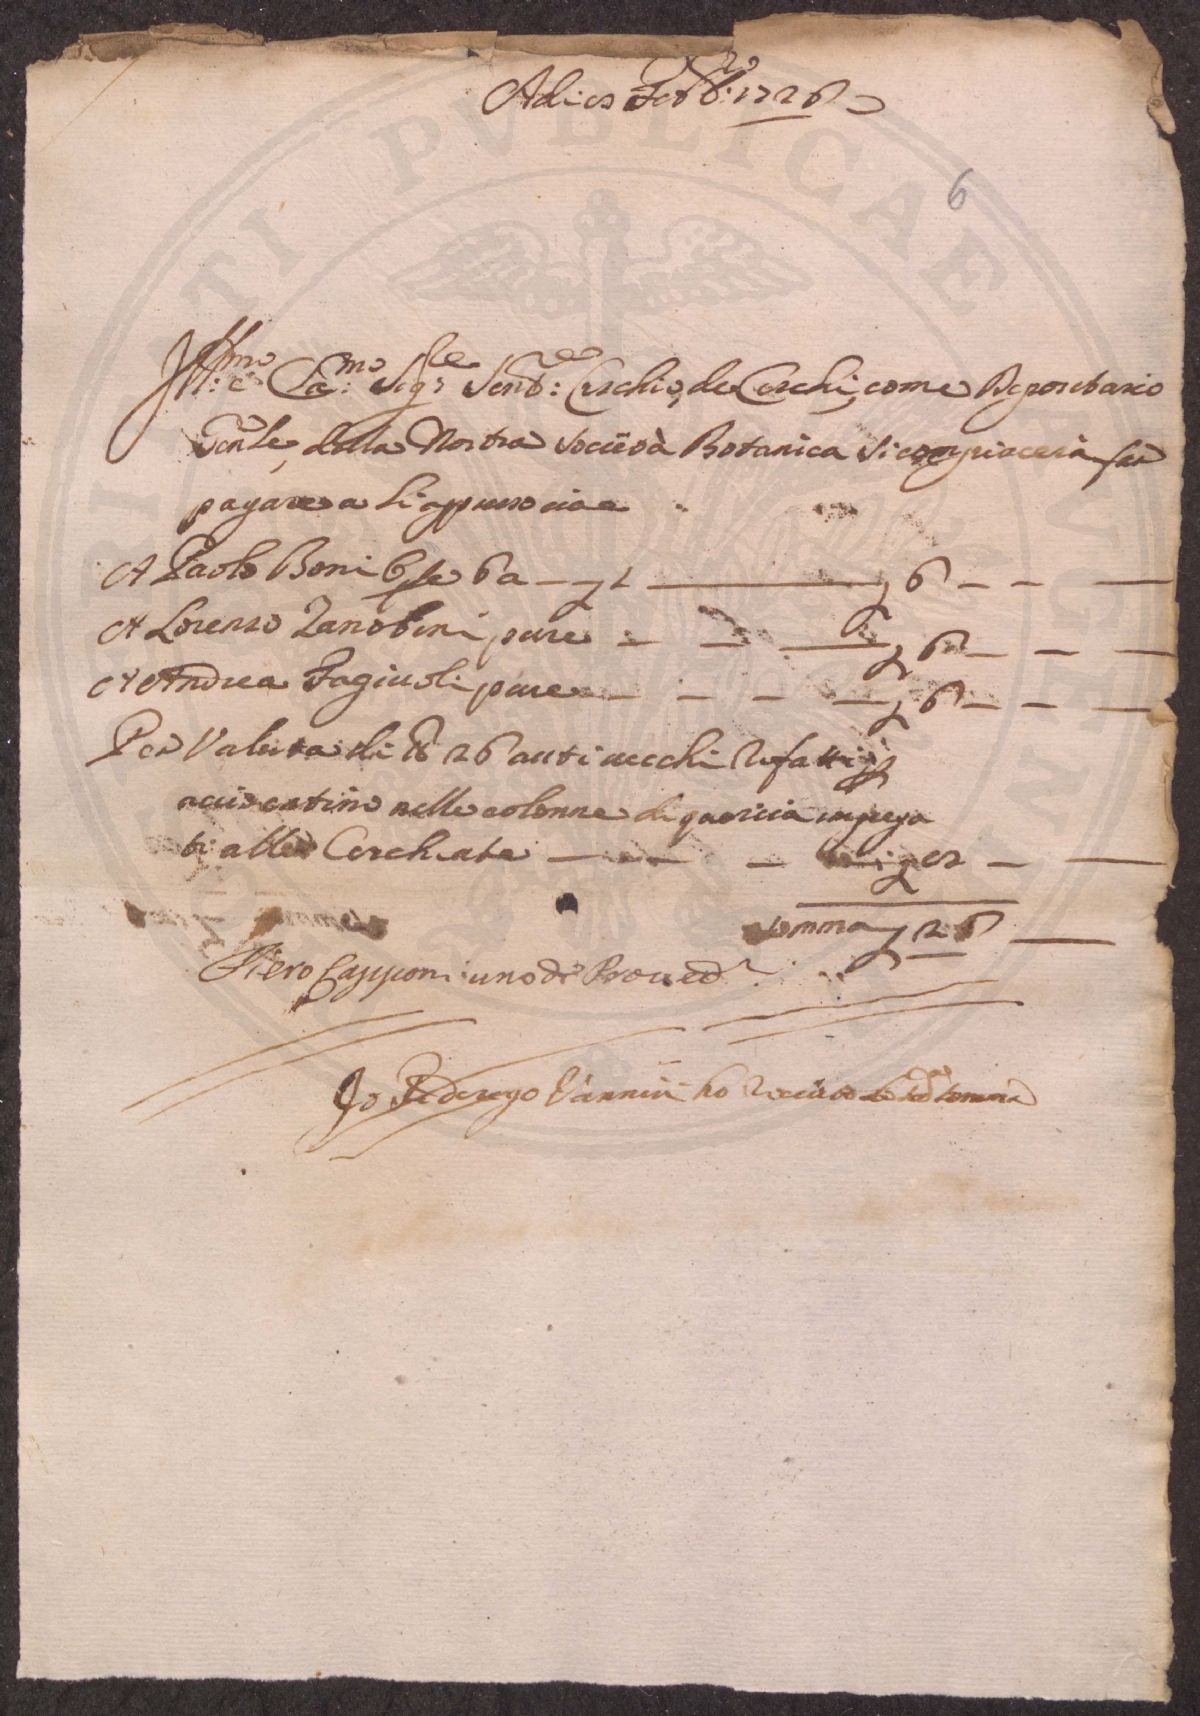 Adi 12 Febb.ro 1726
6
Ill.mo e Cla.mo Sig.re Sen.re Cerchio de Cerchi, come Depositario
Gen.le della Nostra Società Botanica si compiacerà far
pagare a li appresso cioè
A Paolo Boni 6 6a £ 6
A Lorenzo Zanobini pure £ 6
A Andrea Fagiuoli pure £ 6
Per Valuta di 26 auti vecchi refatti
nelle colonne di quercia impiega
ti alle Cerchiate
Somma £ 26
Piero Capponi uno de Proved.ri
Io Federego Vannini ho riceuto la somma
BPITI PVBLICAE